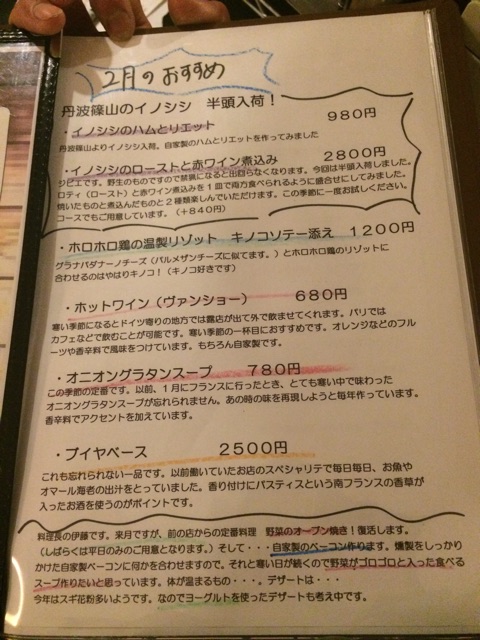 2月のおすすめ
丹波篠山のイノシシ 半頭入荷！
・イノシシのハムとリエット 980円
丹波篠山よりイノシシ入荷。自家製のハムとリエットを作ってみました
・イノシシのローストと赤ワイン煮込み 2800円
ジビエです。野生のものですので禁猟になると出回らなくなります。今回は半頭入荷しました。
ロティ（ロースト）と赤ワイン煮込みを１皿で両方食べられるように盛合せにしてみました。
焼いたものと煮込んだものと２種類楽しんでいただけます。この季節に一度お試しください。
コースでもご用意しています。（＋840円）
・ホロホロ鶏の温製リゾット キノコソテー添え 1200円
グラナパダナーノチーズ（パルメザンチーズに似てます。）とホロホロ鶏のリゾットに
合わせるのはやはりキノコ！（キノコ好きです）
・ホットワイン（ヴァンショー） 680円
寒い季節になるとドイツ寄りの地方では露店が出て外で飲ませてくれます。パリでは
カフェなどで飲むことが可能です。寒い季節の一杯目におすすめです。オレンジなどのフル
ーツや香辛料で風味をつけています。もちろん自家製です。
・オニオングラタンスープ 780円
この季節の定番です。以前、１月にフランスに行ったとき、とても寒い中で味わった
オニオングラタンスープが忘れられません。あの時の味を再現しようと毎年作っています。
香辛料でアクセントを加えています。
・ブイヤベース 2500円
これも忘れられない一品です。以前働いていたお店のスペシャリテで毎日毎日、お魚や
オマール海老の出汁をとっていました。香り付けにパスティスという南フランスの香草が
入ったお酒を使うのがポイントです。
料理長の伊藤です。来月ですが、前の店からの定番料理 野菜のオーブン焼き！復活します。
（しばらくは平日のみのご用意となります。）そして・・・自家製のベーコン作ります。燻製をしっかり
かけた自家製ベーコンに何かを合わせますので。それと寒い日が続くので野菜がゴロゴロと入った食べる
スープ作りたいと思っています。体が温まるもの・・・。デザートは・・・
今年はスギ花粉多いようです。なのでヨーグルトを使ったデザートも考え中です。